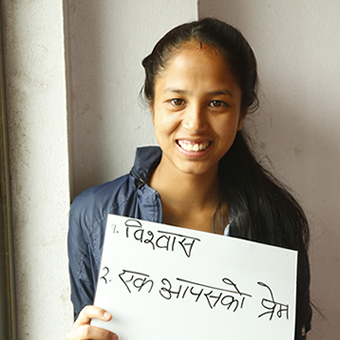 १. विश्वास
२. एक आपसको प्रेम